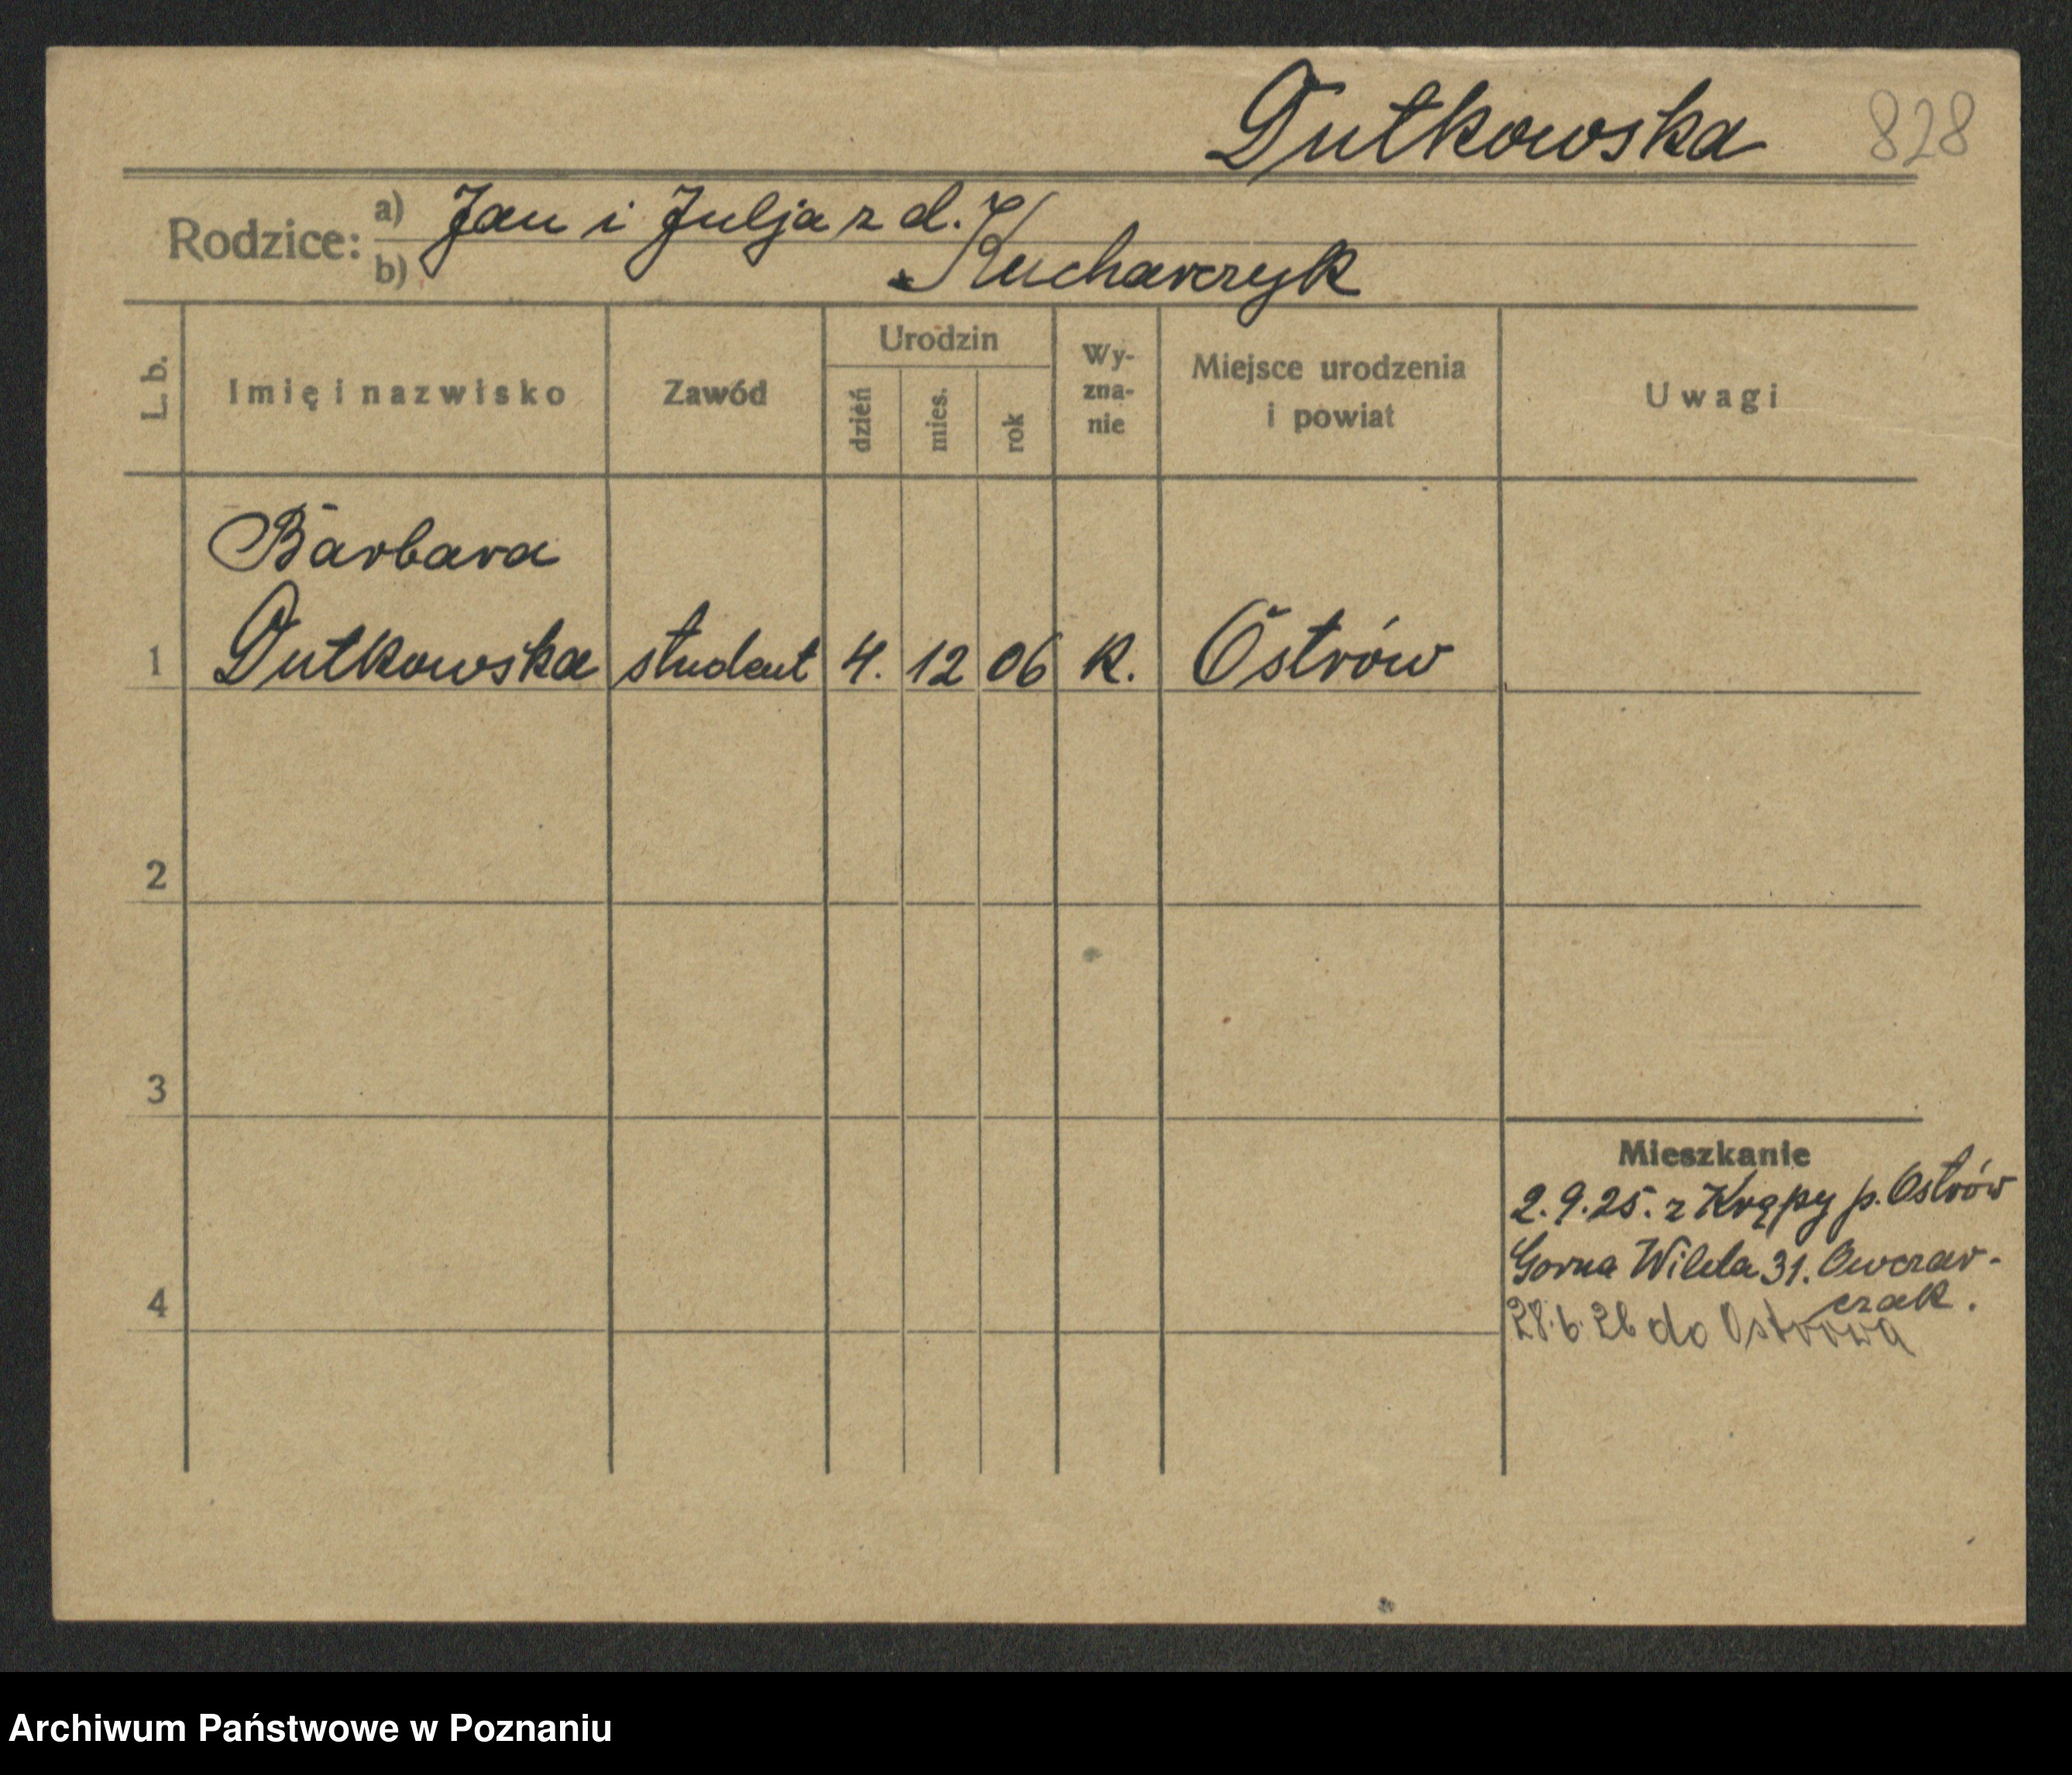 Dutkowska 828
Rodzice: a) Jan i Julja z d.
b) Kucharczyk
L. b. Imię i nazwisko Zawód Urodzin dzień mies. rok Wy-zna-nie Miejsce urodzenia i powiat Uwagi
Barbara
1 Dutkowska student 4. 12 06 k. Ostrów
2
3
Mieszkanie
2.9.25. z Krępy p. Ostrów
Gorna Wilda 31. Owczar-
czak.
4
28.6.26 do Ostrowa
Archiwum Państwowe w Poznaniu